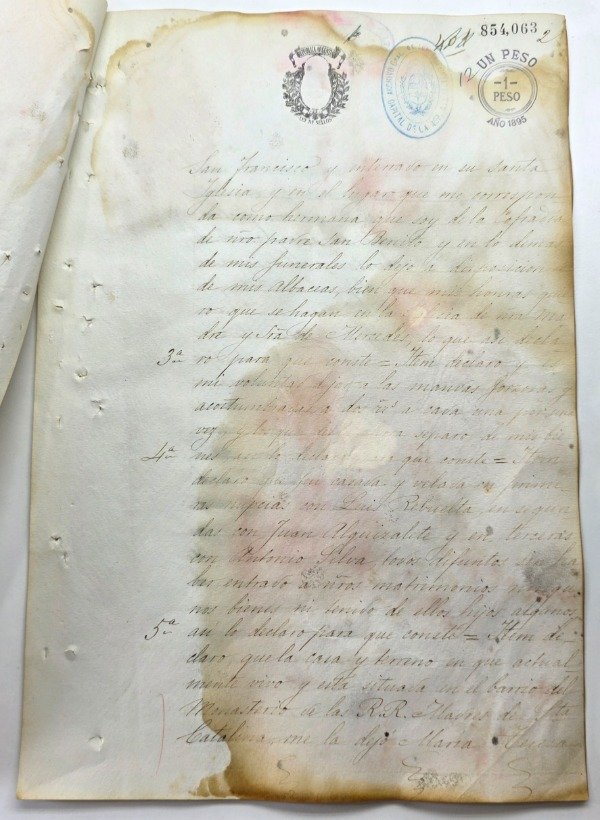 854,063
2
UN PESO
-1-
PESO
AÑO 1895
San Francisco y enterrado en su Santa
Iglesia y en el lugar que me correspon
da como hermana que soy de la Cofradia
de ñro padre San Benito y en lo demas
de mis funerales lo dejo a disposicion
de mis Albaceas, bien que mis honras quie
ro que se hagan en la de mi Ma
dre y Sra de Mercedes, lo que asi decla
3ª ro para que conste = Item declaro y es
mi voluntad dejar a las mandas forzosas y
acostumbradas a dos a cada una por una
vez y lo que separo de mis bie
4ª nes asi lo declaro para que conste = Item
declaro que fui casada y velada en prime
ras nupcias con Luis en segun
das con Juan y en terceras
con Antonio Silva todos difuntos sin ha
ber entrado a ñros matrimonios ningu
nos bienes ni tenido de ellos hijos algunos
5ª asi lo declaro para que conste = Item de
claro, que la casa y terreno en que actual
mente vivo y esta situada en el barrio del
Monasterio de las R.R. Madres de Sta
Catalina, me la dejó Maria